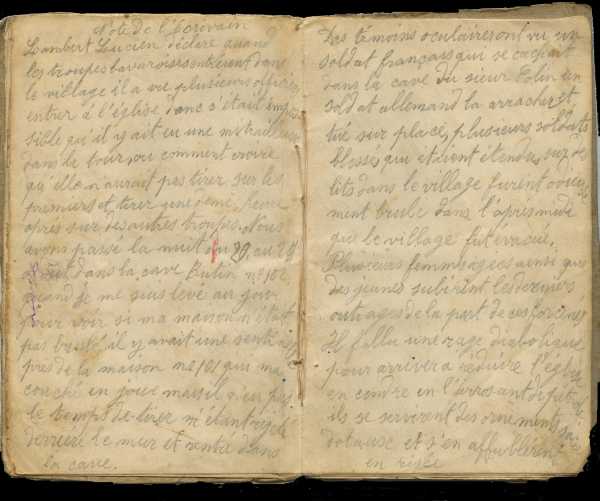 Note de l'écrivain
Lambert Lucien déclare quand
les troupes bavaroises entrèrent dans
le village il a vu plusieurs officiers
entrer à l'église donc c'était impos
sible qu'il y ait eu une mitrailleuse
dans la tour, ou comment croire
qu'elle n'aurait pas tirer sur les
premiers et tirer une demi heure
après sur des autres troupes. Nous
avons passé la nuit du 20 au 21
août dans la cave Butin n° 102
quand je me suis levé au jour
pour voir si ma maison n'était
pas brulé il y avait une sentinelle
près de la maison n° 101 qui m'a
couché en joue mais il n'eu pas
le temps de tirer m'étant
derrière le mur et rentré dans
la cave.
Des témoins oculaires ont vu un
soldat français qui se cachait
dans la cave du sieur Colin un
soldat allemand la arracher et
tué sur place, plusieurs soldats
blessé qui étaient étendu sur des
lits dans le village furent
ment brulé dans l'après midi
que le village fut évacué.
Plusieurs femmes agees ainsi que
des jeunes subirent les derniers
outrages de la part de ces forcenés
Il fallu une rage diabolique
pour arriver à réduire l'église
en cendre en l'arrosant de pétrole
ils se servirent des ornements
et s'en affublèrent
en